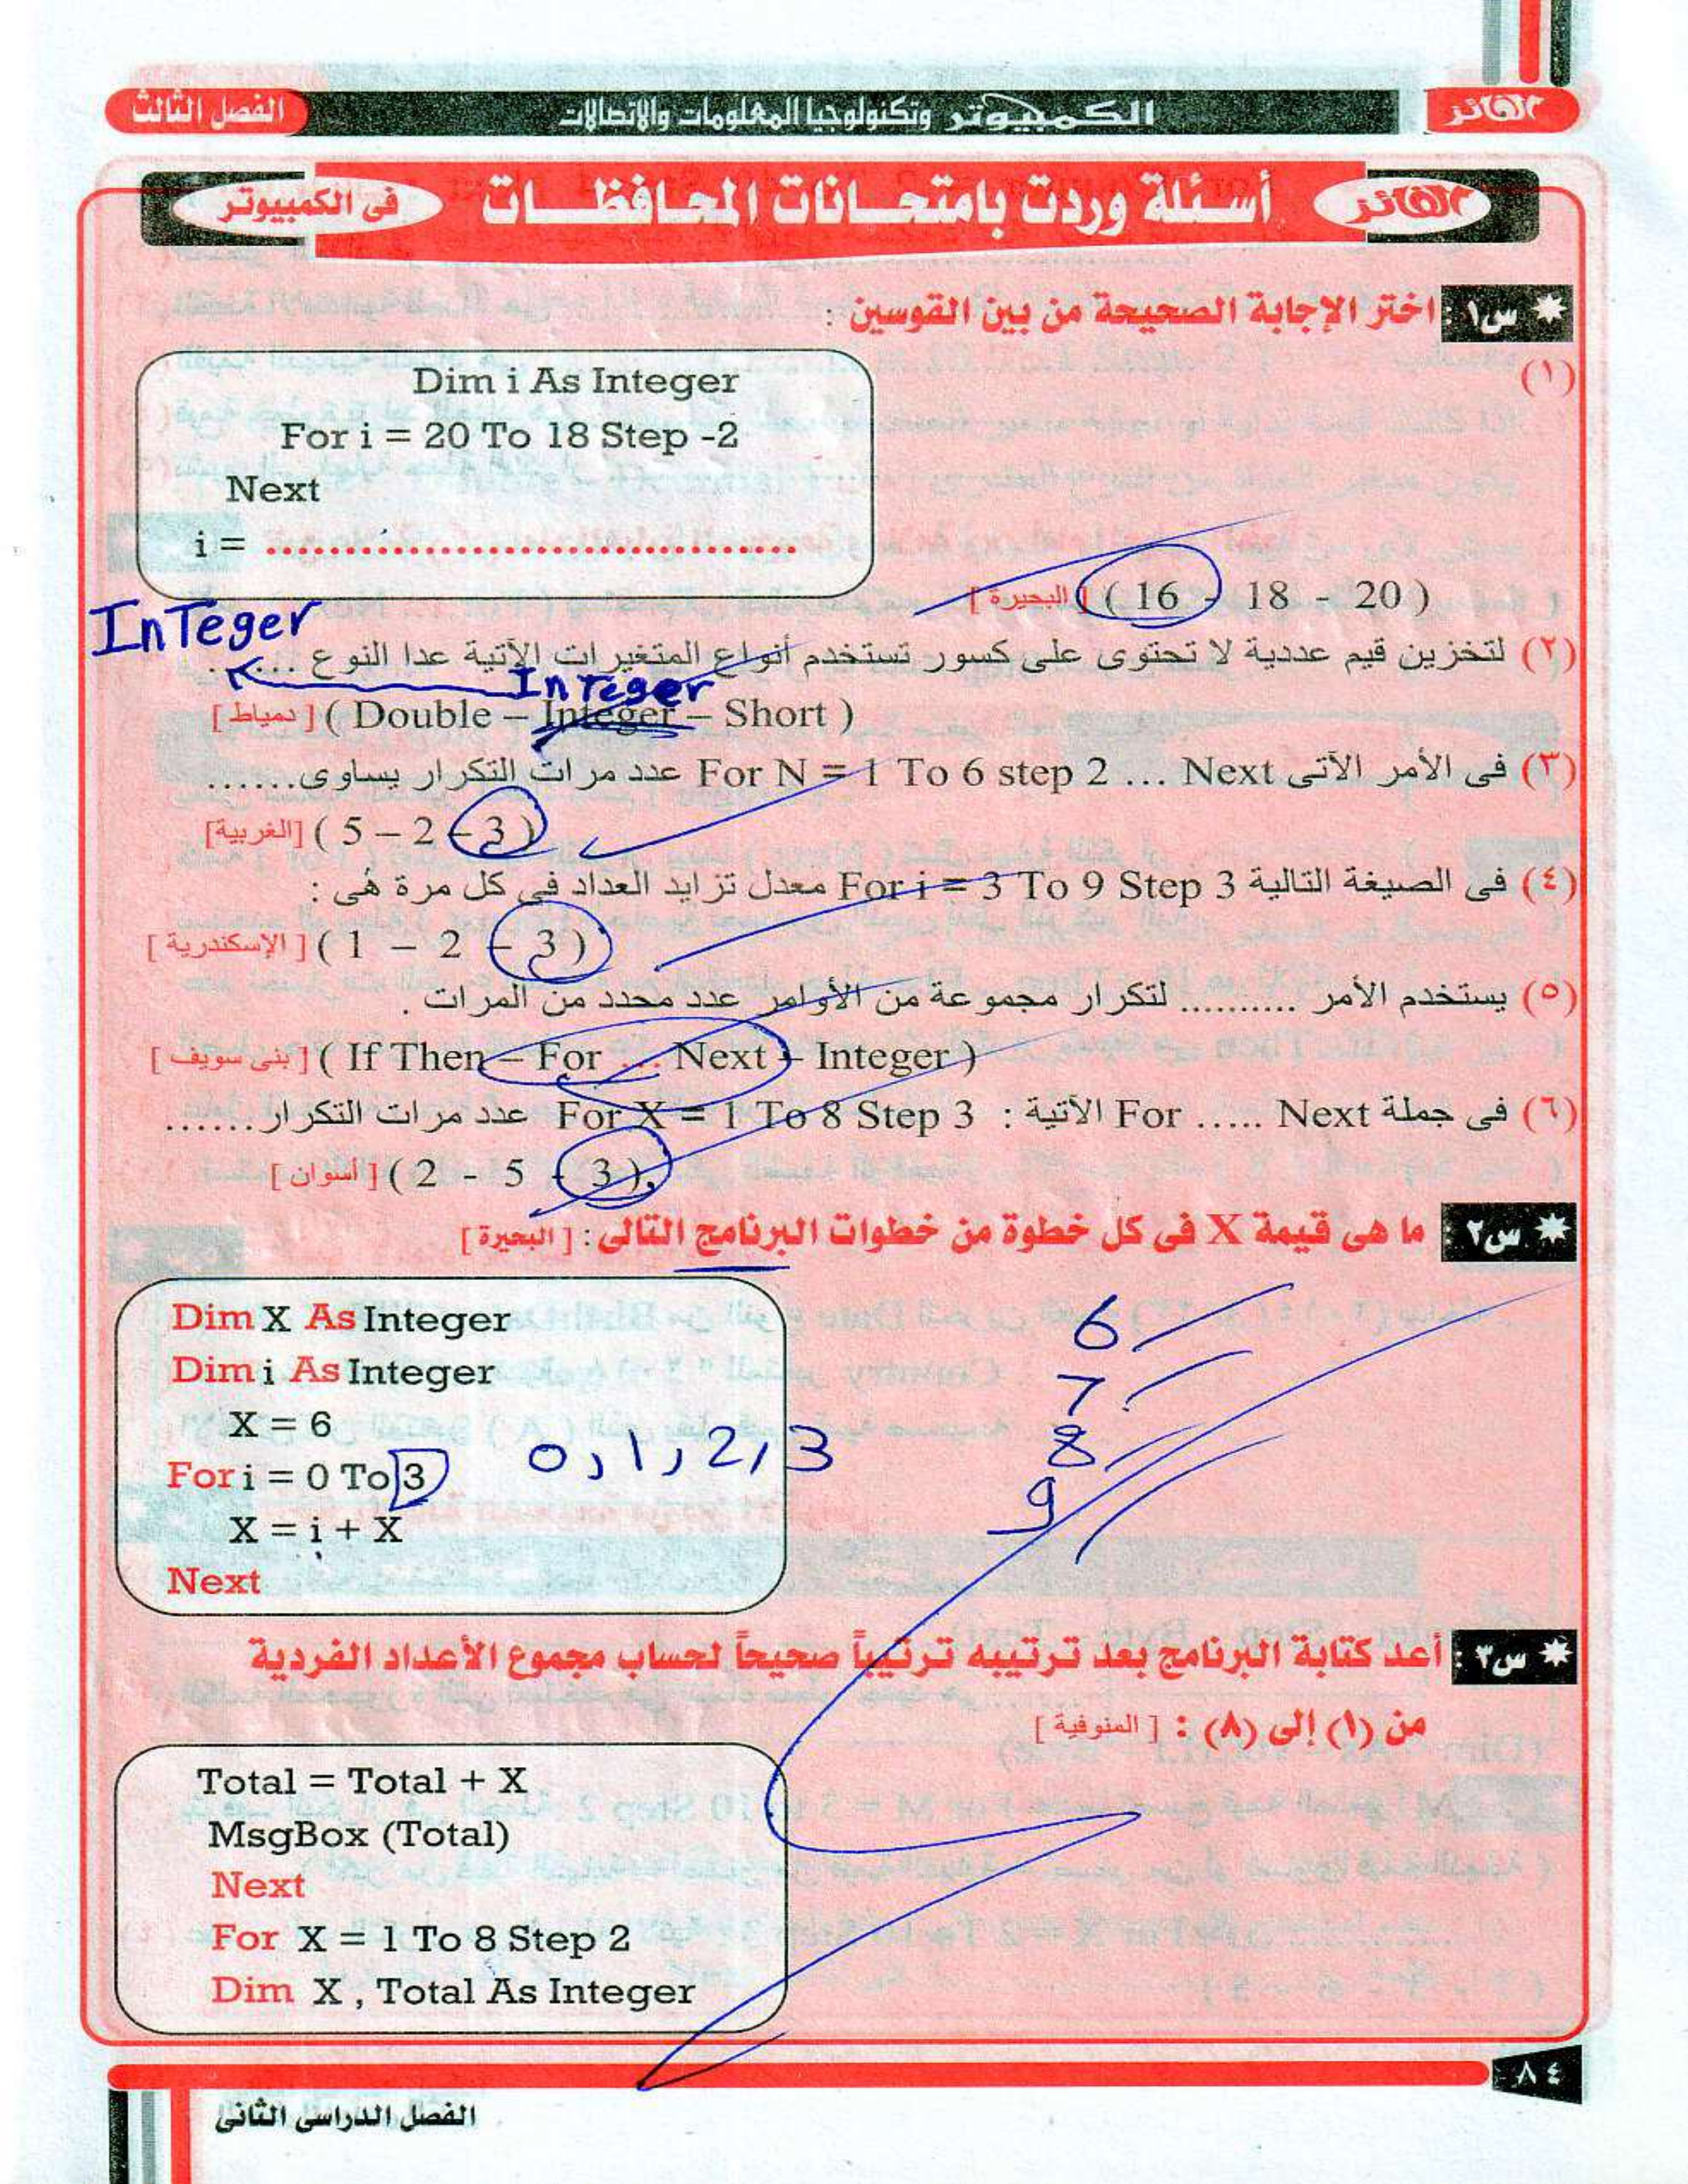 الفائز
الكمبيوتر وتكنولوجيا المعلومات والاتصالات
الفصل الثالث
الفائز
أسئلة وردت بامتحانات المحافظات
فى الكمبيوتر
س١ : اختر الإجابة الصحيحة من بين القوسين :
(١)
Dim i As Integer
For i = 20 To 18 Step -2
Next
i = ..................................
( 16 - 18 - 20 ) [ البحيرة ]
InTeger
(٢) لتخزين قيم عددية لا تحتوى على كسور تستخدم أنواع المتغيرات الآتية عدا النوع ......
InTeger
( Double – Integer – Short ) [ دمياط ]
(٣) فى الأمر الآتى For N = 1 To 6 step 2 ... Next عدد مرات التكرار يساوى.......
( 5 – 2 – 3 ) [الغربية]
(٤) فى الصيغة التالية For i = 3 To 9 Step 3 معدل تزايد العداد فى كل مرة هُى :
( 1 – 2 – 3 ) [ الإسكندرية ]
(٥) يستخدم الأمر .......... لتكرار مجموعة من الأوامر عدد محدد من المرات .
( If Then – For ... Next – Integer ) [ بنى سويف ]
(٦) فى جملة For ..... Next الآتية : For X = 1 To 8 Step 3 عدد مرات التكرار.......
( 2 - 5 - 3 ) [ أسوان ]
س٢ : ما هى قيمة X فى كل خطوة من خطوات البرنامج التالى : [ البحيرة ]
Dim X As Integer
Dim i As Integer
X = 6
For i = 0 To 3
X = i + X
Next
0, 1, 2, 3
6
7
8
9
س٣ : أعد كتابة البرنامج بعد ترتيبه ترتيباً صحيحاً لحساب مجموع الأعداد الفردية
من (١) إلى (٨) : [ المنوفية ]
Total = Total + X
MsgBox (Total)
Next
For X = 1 To 8 Step 2
Dim X , Total As Integer
٨٤
الفصل الدراسى الثانى